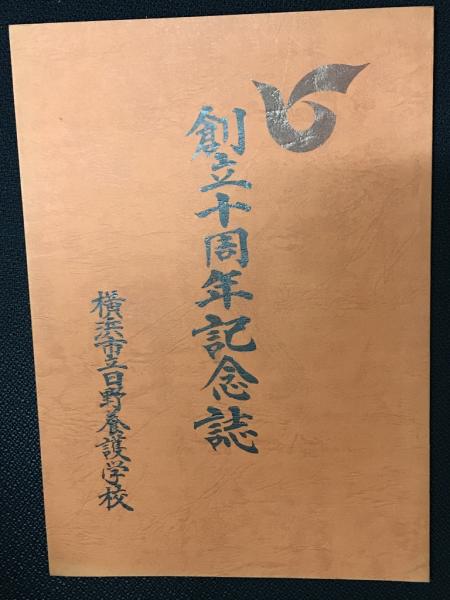 創立十周年記念誌
横浜市立日野養護学校